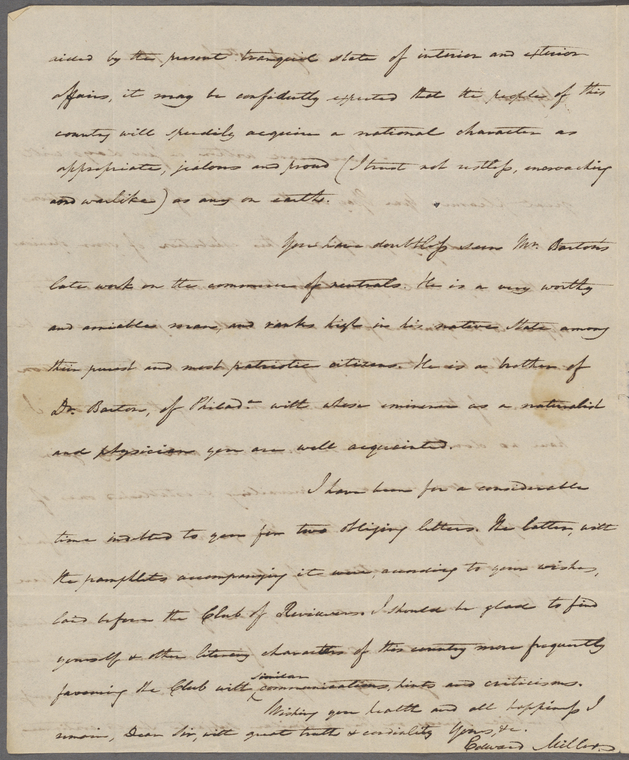 aided by the present tranquil state of interior and exterior
affairs, it may be confidently expected that the people of this
country will speedily acquire a national character as
appropriate, jealous and proud (I trust not restless, encroaching
and warlike) as any on earth.
You have doubtless seen Mr. Barton's
late work on the commerce of neutrals. He is a very worthy
and amiable man, and ranks high in his native State among
their purest and most patriotic citizens. He is a brother of
Dr. Barton, of Philada. with whose eminence as a naturalist
and physician you are well acquainted.
I have been for a considerable
time indebted to you for two obliging letters. The latter, with
the pamphlets accompanying it were, according to your wishes,
laid before the Club of Reviewers. I should be glad to find
yourself & other literary characters of this country more frequently
favouring the Club with similar communications, hints and criticisms.
Wishing you health and all happiness I
remain, Dear Sir, with great truth & cordiality Yours, &c.
Edward Miller.